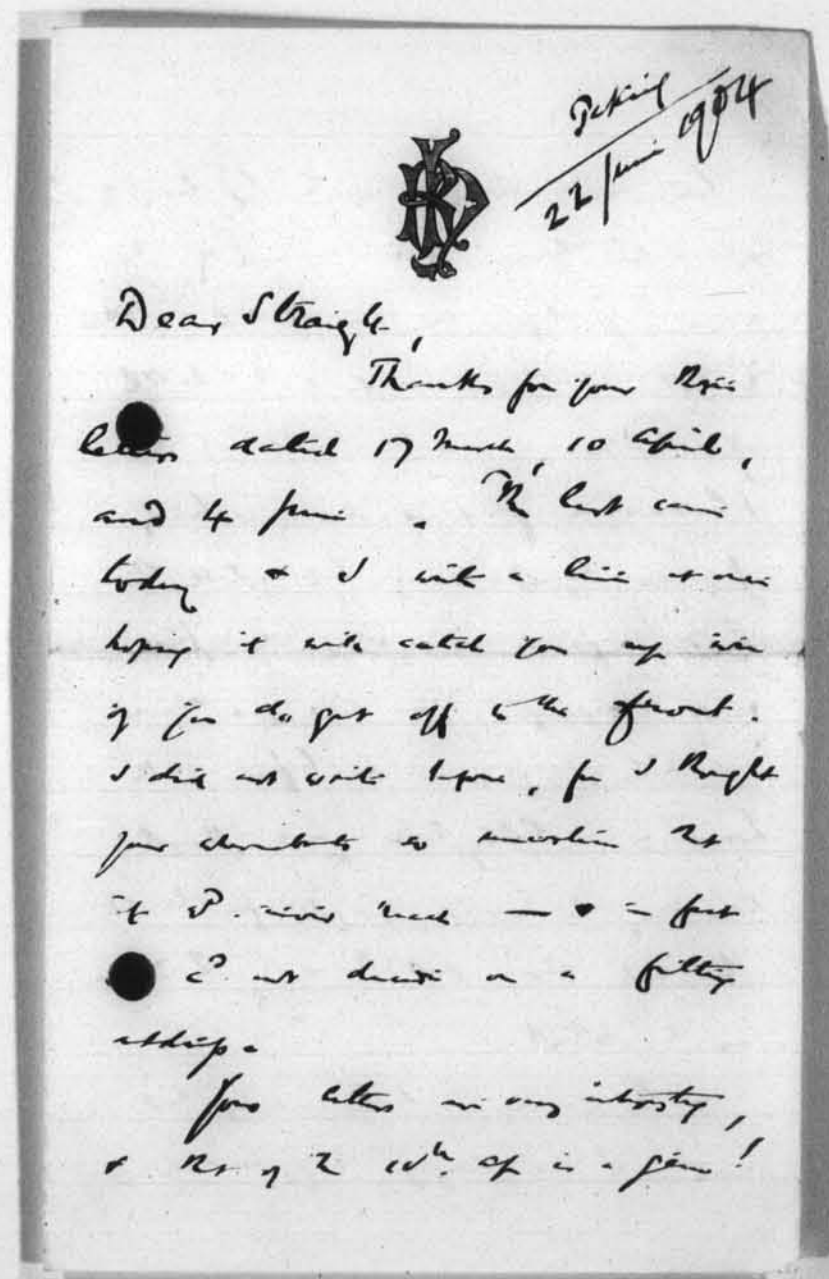 Peking
22 June 1904
Dear Straight,
Thanks for your three
letters dated 17 March, 10 April,
and 4 June. The last came
today & I write a line at once
hoping it will catch you up even
if you do get off to the front.
I did not write before, for I thought
your whereabouts so uncertain that
it wd. never reach — & in fact
cd. not decide on a fitting
address.
Your letters are very interesting,
& that of the 10th. Ap is a gem!